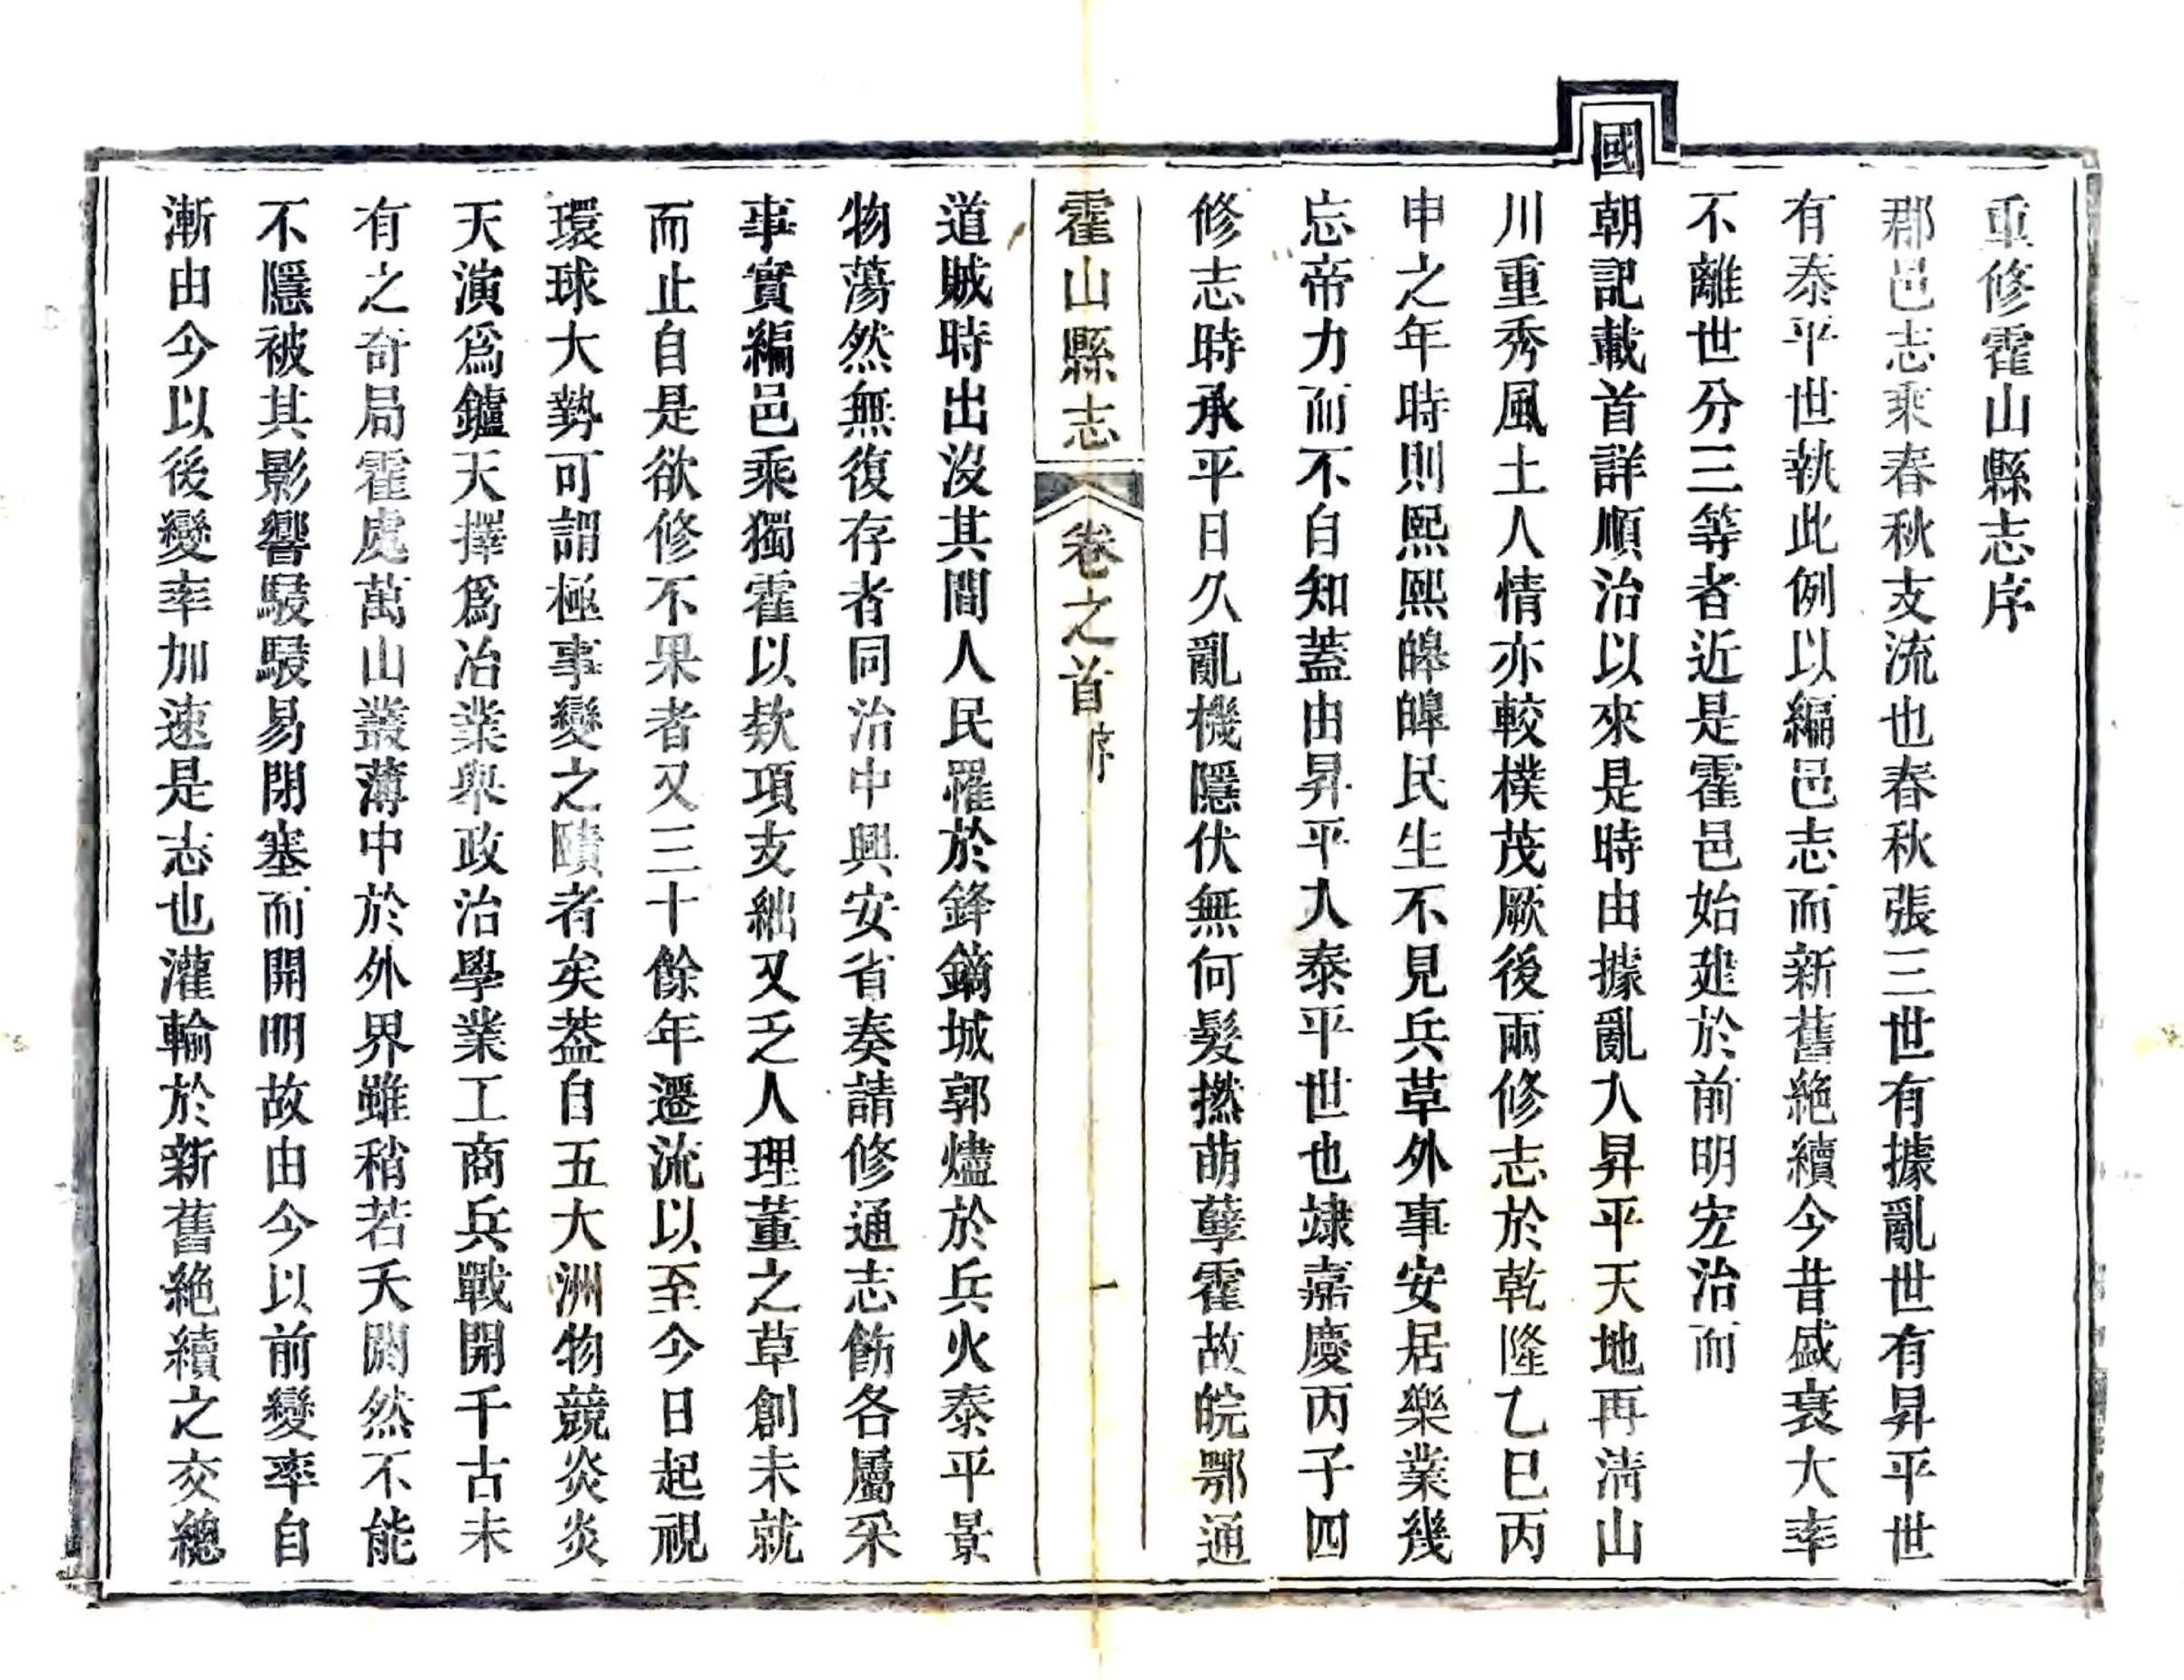 重修霍山縣志序
郡邑志乘春秋支流也春秋張三世有據亂世有昇平世
有泰平世執此例以編邑志而新舊絶續今昔盛衰大率
不離世分三等者近是霍邑始建於前明宏治而
國朝記載首詳順治以來是時由據亂入昇平天地再淸山
川重秀風土人情亦較樸茂厥後兩修志於乾隆乙巳丙
申之年時則熙熙皞皞民生不見兵革外事安居樂業幾
忘帝力而不自知蓋由昇平入泰平世也逮嘉慶丙子四
修志時承平日久亂機隱伏無何髮撚萌孽霍故皖鄂通
霍山縣志
卷之首 序
一
道賊時出沒其間人民罹於鋒鏑城郭燼於兵火泰平景
物蕩然無復存者同治中興安省奏請修通志飭各屬采
事實編邑乘獨霍以欵項支絀又乏人理董之草創未就
而止自是欲修不果者又三十餘年遷流以至今日起視
環球大勢可謂極事變之賾者矣葢自五大洲物競炎炎
天演爲鑪天擇爲冶業與政治學業工商兵戰開千古未
有之奇局霍處萬山叢薄中於外界雖稍若夭閼然不能
不隱被其影響駸駸易閉塞而開明故由今以前變率自
漸由今以後變率加速是志也灌輸於新舊絶續之交總